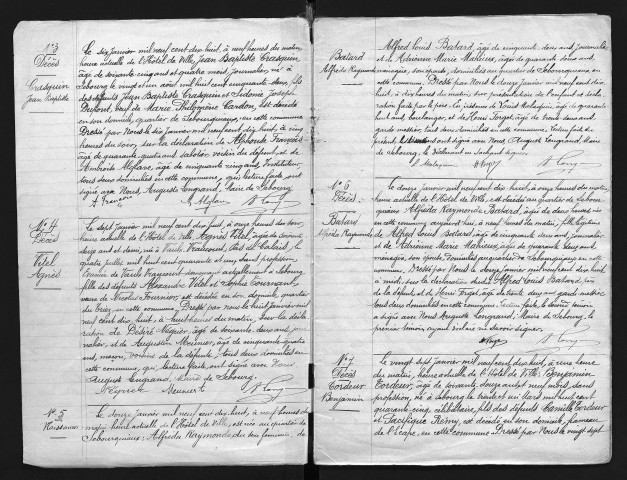 N° 3
Décès
Crasquin
Jean Baptiste
Le six janvier mil neuf cent dix huit, à neuf heures du matin,
heure actuelle de l'Hôtel de Ville, Jean Baptiste Crasquin,
âgé de soixante cinq ans et quatre mois, journalier, né à
Sebourg le vingt et un août mil huit cent cinquante deux, fils
des défunts Jean Baptiste Crasquin et Sidonie Joseph
Dupont, veuf de Marie Philomène Cardon, est décédé
en son domicile, quartier de Sebourquiaux, en cette commune
Dressé par Nous le six janvier mil neuf cent dix huit, à cinq
heures du soir, sur la déclaration de Alphonse François
âgé de quarante quatre ans sabotier voisin du défunt et de
Ambroise Méflan, âgé de cinquante cinq ans Instituteur,
tous deux domiciliés en cette commune, qui, lecture faite, ont
signé avec Nous, Auguste Engrand, Maire de Sebourg
A François
N° 4
Décès
Vitel
Agnès
Le sept janvier mil neuf cent dix huit, à onze heures du soir,
heure actuelle de l'Hôtel de Ville, Agnès Vitel, âgée de soixante
ans, née à Vaulx Vraucourt, Pas de Calais, le
quatre juillet mil huit cent quarante et un, sans profession,
de Vaulx Vraucourt demeurant actuellement à Sebourg
fille des défunts Alexandre Vitel et Sophie
veuve de Nicolas Fournier, est décédée en son domicile, quartier
du Briez, en cette commune. Dressé par Nous le huit janvier mil
neuf cent dix huit, à huit heures du matin, sur la déclaration
de Désiré Mégier, âgé de soixante deux ans, journalier,
et de Augustin Meunier, âgé de cinquante quatre
ans, maçon, voisins de la défunte, tous deux domiciliés en
cette commune, qui, lecture faite, ont signé avec Nous
Auguste Engrand, Maire de Sebourg.
Meunier A
N° 5
Naissance
Le douze janvier mil neuf cent dix huit, à neuf heures du
matin heure actuelle de l'Hôtel de Ville, est née au quartier de
Sebourquiaux, Alfréda Raymonde du sexe féminin, de
Batard
Alfréda Raymonde
Alfred Louis Batard, âgé de cinquante deux ans, journalier
et de Adrienne Marie Mahieux, âgée de quarante deux ans
ménagère, son épouse, domiciliés au quartier de Sebourquiaux en
cette commune. Dressé par Nous le douze janvier mil neuf cent dix
huit, à dix heures du matin, sur présentation de l'enfant et déclaration
faite par le père. En présence de Louis, âgé de quarante
huit ans, boulanger, et de Henri Forget, âgé de trente deux ans,
garde messier, tous deux domiciliés en cette commune. Lecture faite du
présent, les témoins ont signé avec Nous Auguste Engrand, Maire
de Sebourg, le déclarant ne sachant signer.
H. Forget
N° 6
Décès
Batard
Alfréda Raymonde
Le douze janvier mil neuf cent dix huit, à onze heures du matin,
heure actuelle de l'Hôtel de Ville, est décédée au quartier de Sebourquiaux
Alfréda Raymonde Batard, âgée de deux heures, née
en cette commune aujourd'hui, à neuf heures du matin, fille légitime
de Alfred Louis Batard, âgé de cinquante deux ans, journalier
et de Adrienne Marie Mahieux, âgée de quarante deux ans
ménagère, son épouse domiciliés au quartier de Sebourquiaux en cette
commune. Dressé par Nous le douze janvier mil neuf cent dix huit
à midi, sur la déclaration de Alfred Louis Batard, père
de la défunte et de Henri Forget, âgé de trente deux ans, garde messier
tous deux domiciliés en cette commune. Lecture faite, le second témoin
a signé avec Nous Auguste Engrand, Maire de Sebourg, le
premier témoin ayant déclaré ne savoir signer.
H. Forget
N° 7
Décès
Cordeur
Benjamin
Le vingt sept janvier mil neuf cent dix huit, à une heure
du matin, heure actuelle de l'Hôtel de Ville, Benjamin
Cordeur, âgé de soixante douze ans et neuf mois, sans
profession, né à Sebourg le trente et un mars mil huit cent
quarante cinq, célibataire, fils des défunts Camille Cordeur
et Pacifique Remy, est décédé en son domicile, hameau
de l'Écaye, en cette commune. Dressé par Nous le vingt sept